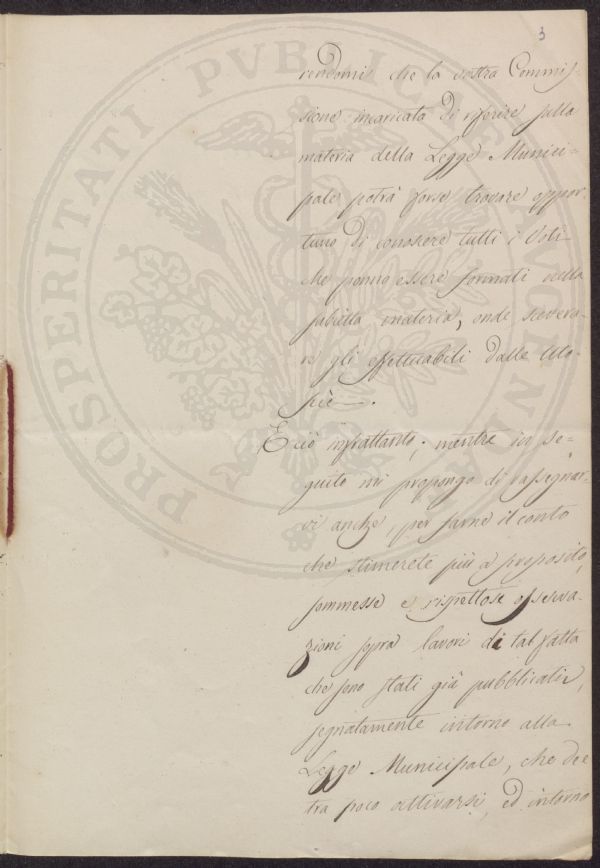 3
rendomi che la vostra Commis-
sione incaricata di riferire sulla
materia della Legge Munici-
pale potrà forse trovare oppor-
tuno di conoscere tutti i Voti
che ponno essere formati nella
subietta materia, onde scevera-
re gli effettuabili dalle Uto-
pie.
E ciò infrattanto; mentre in se-
guito mi propongo di rassegnar-
vi anche, per farne il conto
che stimerete più a proposito,
sommesse e rispettose osserva-
zioni sopra lavori di tal fatta
che sono stati già pubblicati,
segnatamente intorno alla
Legge Municipale, che dee
tra poco attivarsi, ed intorno
PROSPERITATI PVBLICAE AVGENDAE